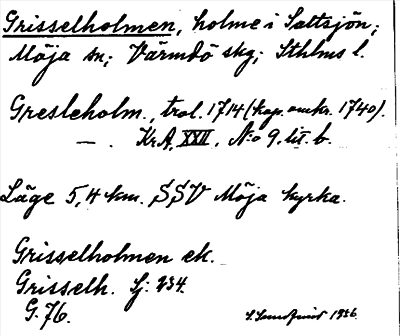 Grisselholmen, holme i Saltsjön;
Möja sn; Värmdö skg; Sthlms l.
Gresleholm., trol. 1714 (kop. omkr. 1740).
— . Kr.A. XXII, N:o 9. lit. b.
Läge 5,4 km. SSV Möja kyrka.
Grisselholmen ek.
Grisselh. Sj: 234.
G. 76.
1936.